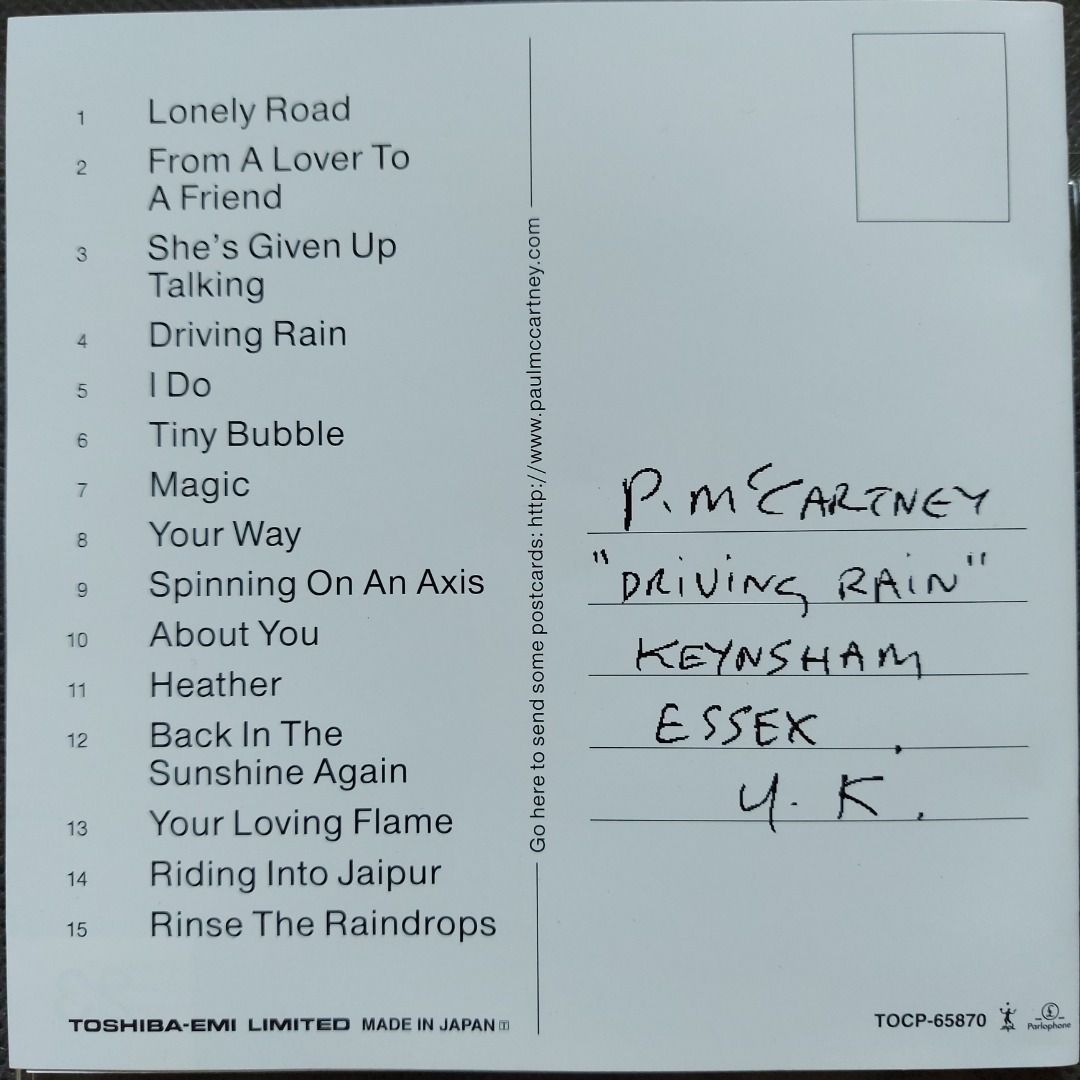 1 Lonely Road
2 From A Lover To
A Friend
3 She's Given Up
Talking
4 Driving Rain
5 I Do
6 Tiny Bubble
7 Magic
8 Your Way
9 Spinning On An Axis
10 About You
11 Heather
12 Back In The
Sunshine Again
13 Your Loving Flame
14 Riding Into Jaipur
15 Rinse The Raindrops
TOSHIBA-EMI LIMITED MADE IN JAPAN 🅃
Go here to send some postcards: http://www.paulmccartney.com
P. McCARTNEY
"DRiViNG RAiN"
KEYNSHAM
ESSEX.
U.K.
TOCP-65870
mpl
£
Parlophone